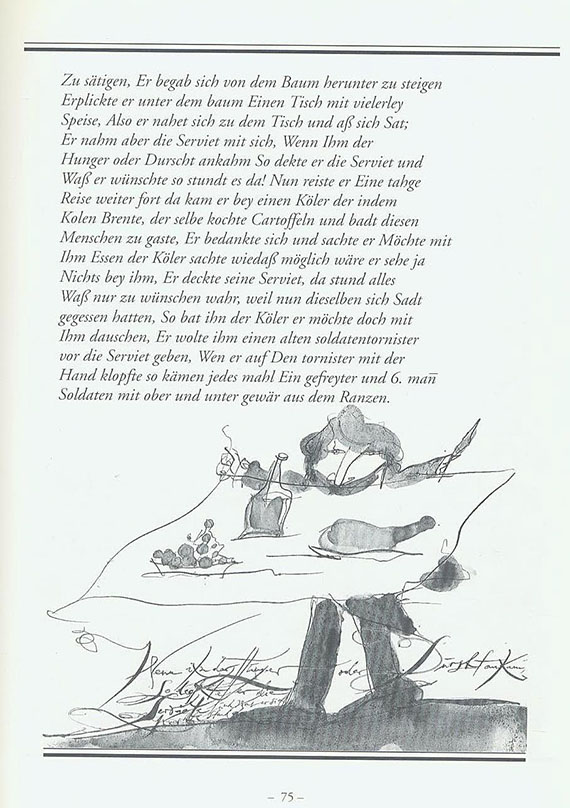 Zu sätigen, Er begab sich von dem Baum herunter zu steigen
Erplickte er unter dem baum Einen Tisch mit vielerley
Speise, Also er nahet sich zu dem Tisch und aß sich Sat;
Er nahm aber die Serviet mit sich, Wenn Ihm der
Hunger oder Durscht ankahm So dekte er die Serviet und
Waß er wünschte so stundt es da! Nun reiste er Eine tahge
Reise weiter fort da kam er bey einen Köler der indem
Kolen Brente, der selbe kochte Cartoffeln und badt diesen
Menschen zu gaste, Er bedankte sich und sachte er Möchte mit
Ihm Essen der Köler sachte wiedaß möglich wäre er sehe ja
Nichts bey ihm, Er deckte seine Serviet, da stund alles
Waß nur zu wünschen wahr, weil nun dieselben sich Sadt
gegessen hatten, So bat ihn der Köler er möchte doch mit
Ihm dauschen, Er wolte ihm einen alten soldatentornister
vor die Serviet geben, Wen er auf Den tornister mit der
Hand klopfte so kämen jedes mahl Ein gefreyter und 6. man̅
Soldaten mit ober und unter gewär aus dem Ranzen.
Wenn ihn der Hunger oder Durscht ankam
– 75 –